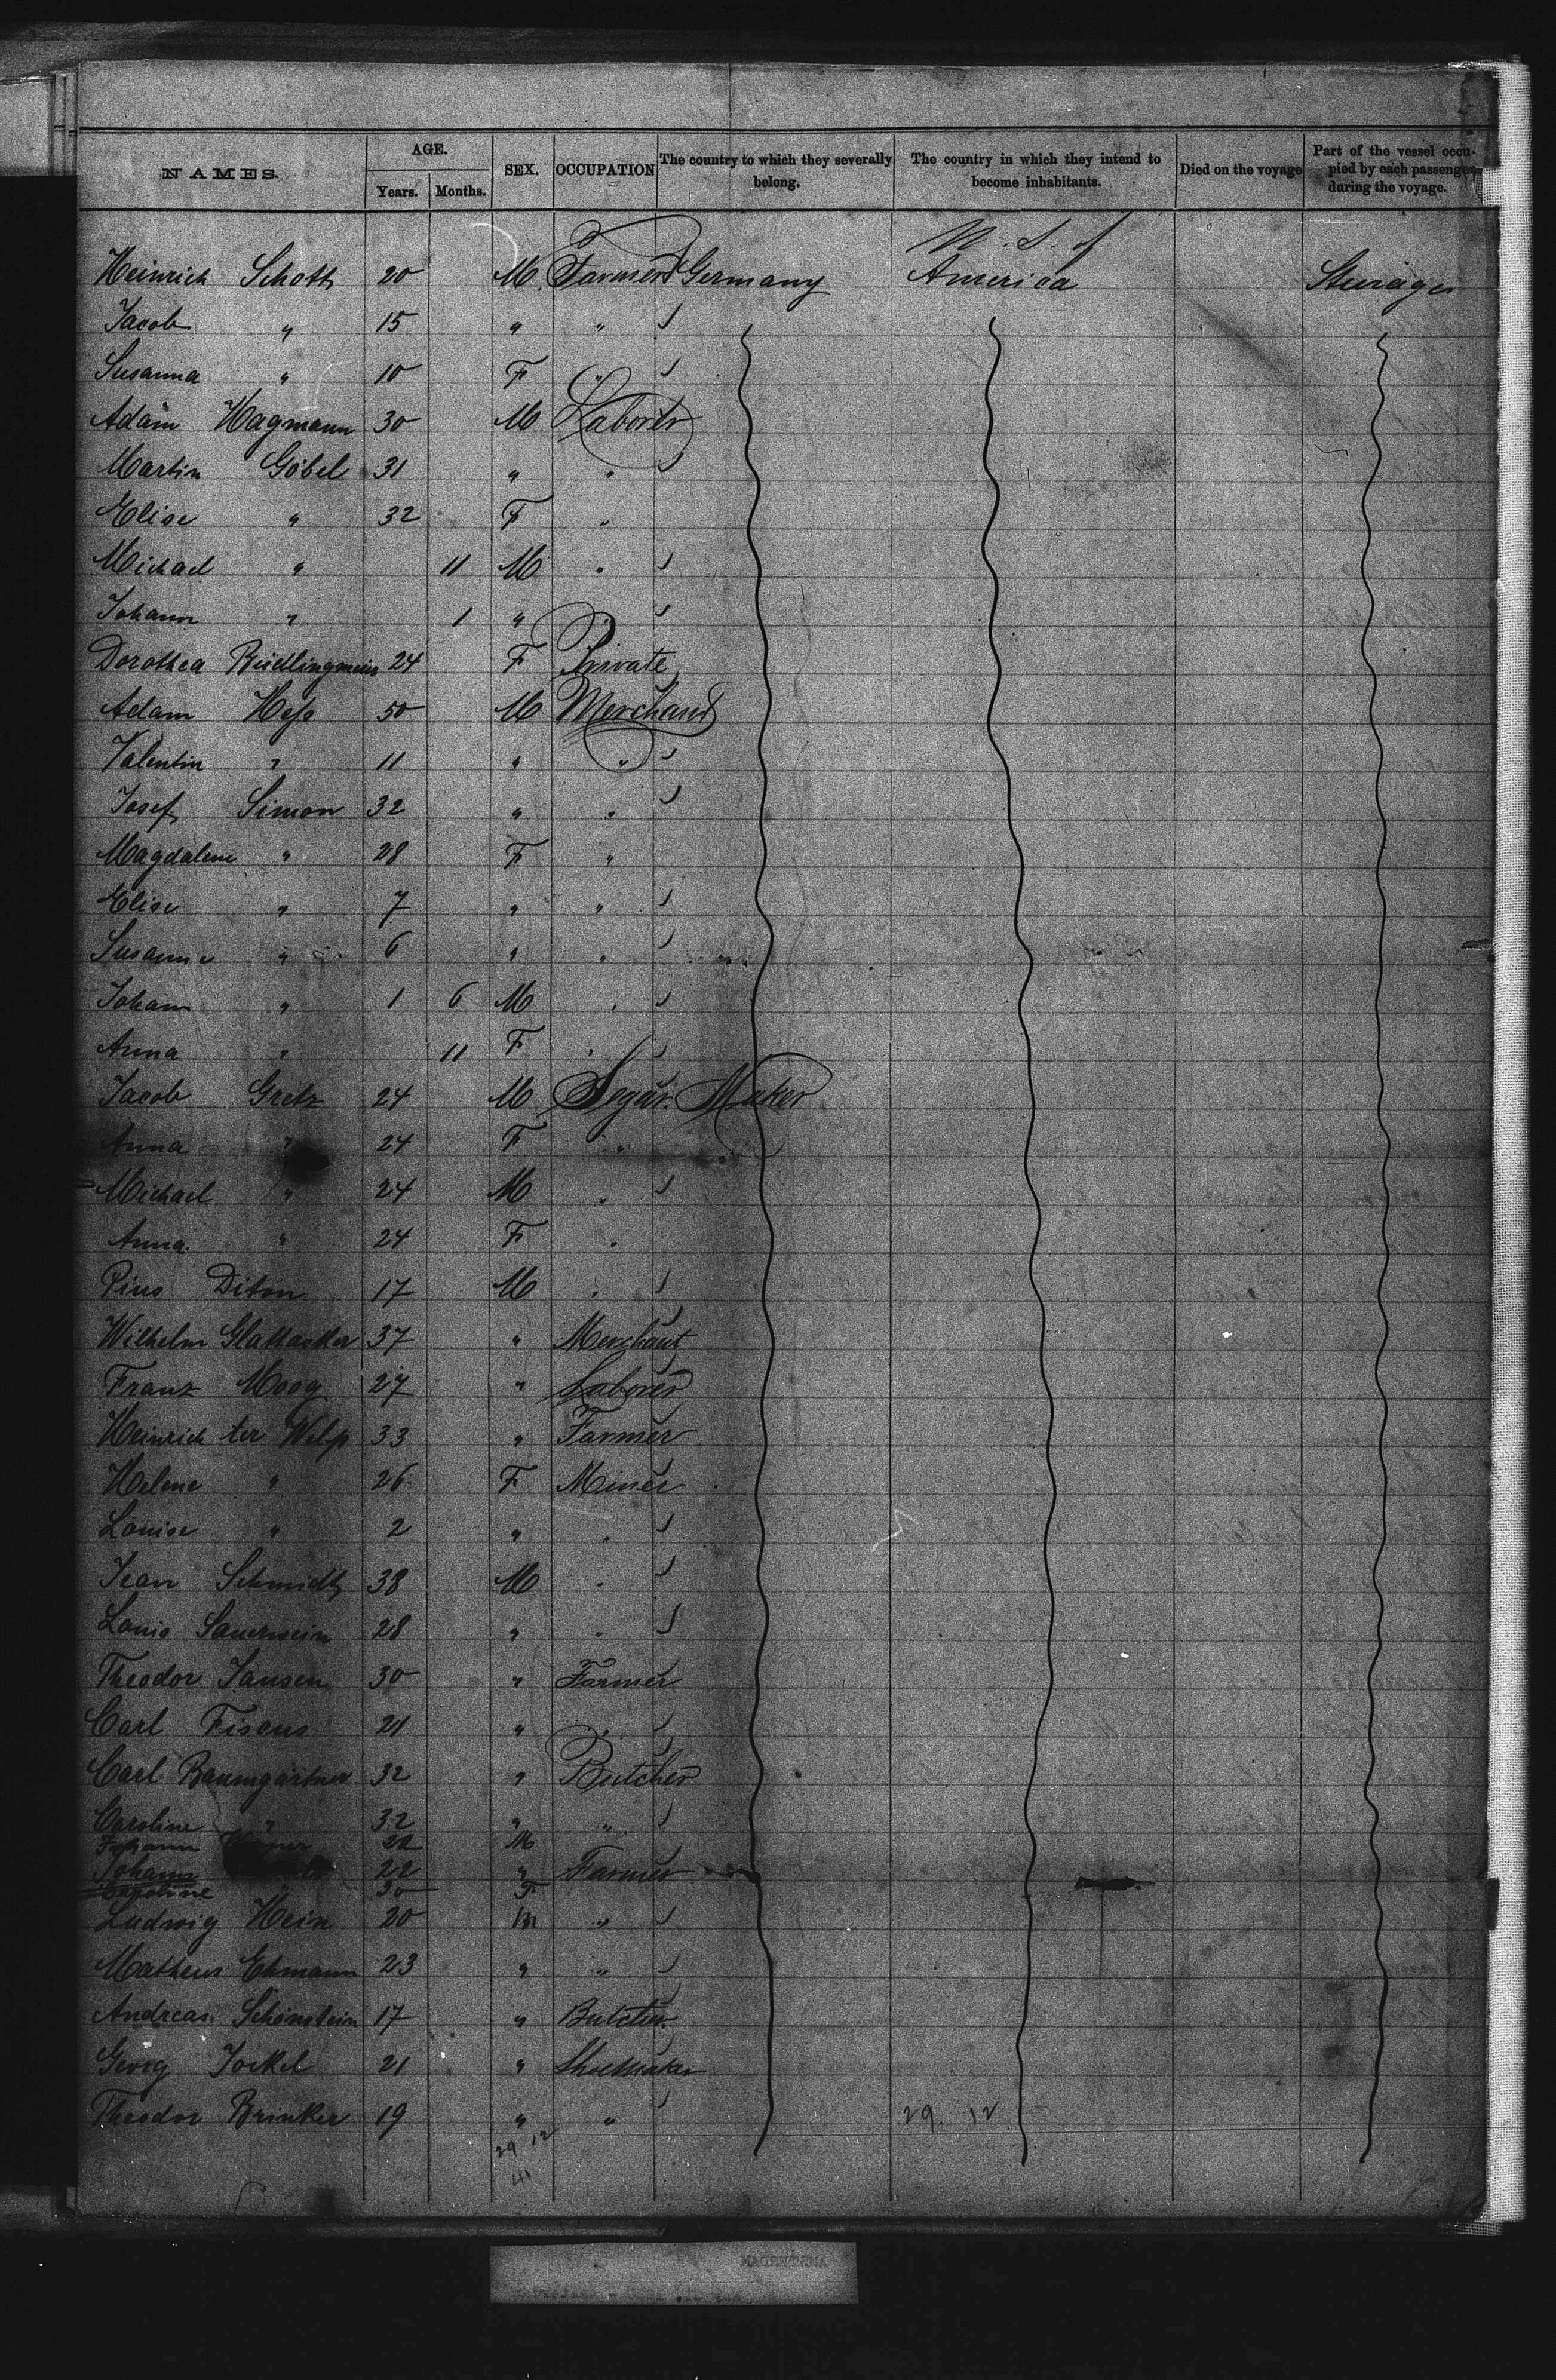 NAMES. AGE. SEX. OCCUPATION The country to which they severally belong. The country in which they intend to become inhabitants. Died on the voyage Part of the vessel occupied by each passenger during the voyage.
Years. Months.
U. S. of
Heinrich Schott 20 M. Farmer Germany America Steerage
Jacob " 15 " "
Susanna " 10 F "
Adam Hagmann 30 M Laborer
Martin Göbel 31 " "
Elise " 32 F "
Michael " 11 M "
Johann " 1 " "
Dorothea 24 F Private
Adam Hess 50 M Merchand
Valentin " 11 " "
Josef Simon 32 " "
Magdalene " 28 F "
Elise " 7 " "
Susanne " 6 " "
Johann " 1 6 M "
Anna " 11 F "
Jacob Gretz 24 M Segar Maker
Anna " 24 F "
Michael " 24 M "
Anna " 24 F "
Pius Diton 17 M "
Wilhelm Glattacker 37 " Merchant
Franz Moog 27 " Laborer
Heinrich ter Welp 33 " Farmer
Helene " 26 F Miner
Louise " 2 " "
Jean Schmidt 38 M "
Louis Sauerwein 28 " "
Theodor Jansen 30 " Farmer
Carl 21 " "
Carl Baumgärtner 32 " Butcher
Caroline " 32 " "
Johann 22 M
Johann 22 " Farmer
Caroline " 30 F
Ludwig Hein 20 M "
Matheus Ehmann 23 " "
Andreas Schönstein 17 " Butcher
Georg Jockel 21 " Shoemaker
Theodor Brinker 19 " " 29. 12
29 12
41